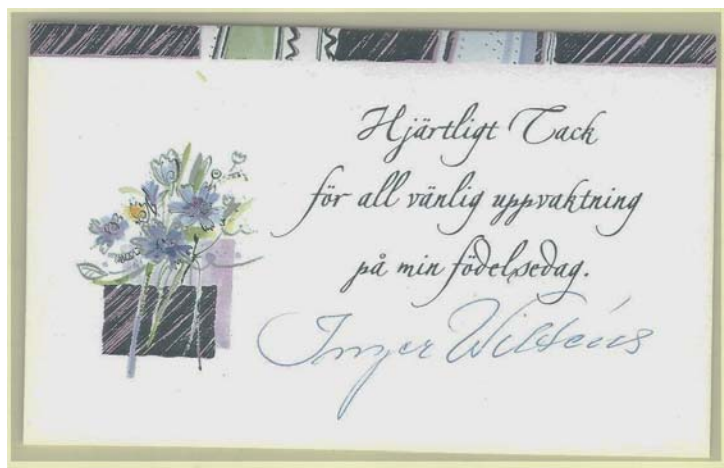 Hjärtligt Tack
för all vänlig uppvaktning
på min födelsedag.
Inger